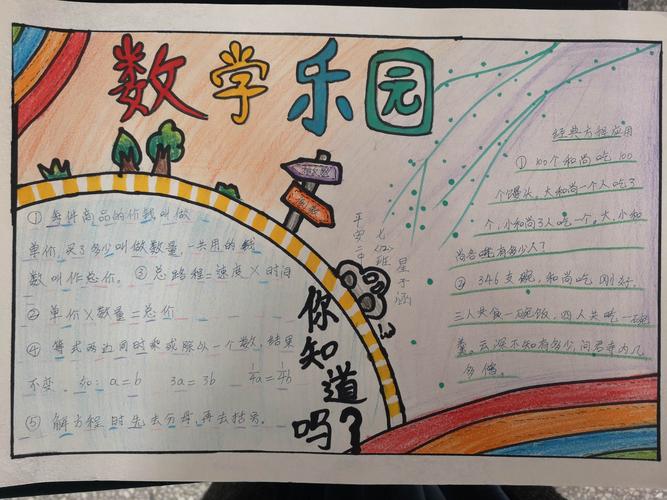 数学乐园
① 每件商品的价钱叫做
单价,买了多少叫做数量,一共用的钱
数叫作总价。③ 总路程=速度×时间
② 单价×数量=总价
④ 等式两边同时乘或除以一个数,结果
不变。如:a=b 3a=3b ¼a=¼b
⑤ 解方程时先去分母,再去括号。
你知道吗?
平安二中
七(2)班
星子涵
经典方程应用
① 100个和尚吃100
个馒头,大和尚一个人吃了3
个,小和尚3人吃一个。大、小和
尚各有多少人?
② 346支碗,和尚吃刚好
三人共食一碗饭,四人共吃一碗
羹,云深不知有多少,问君寺内几
多僧。